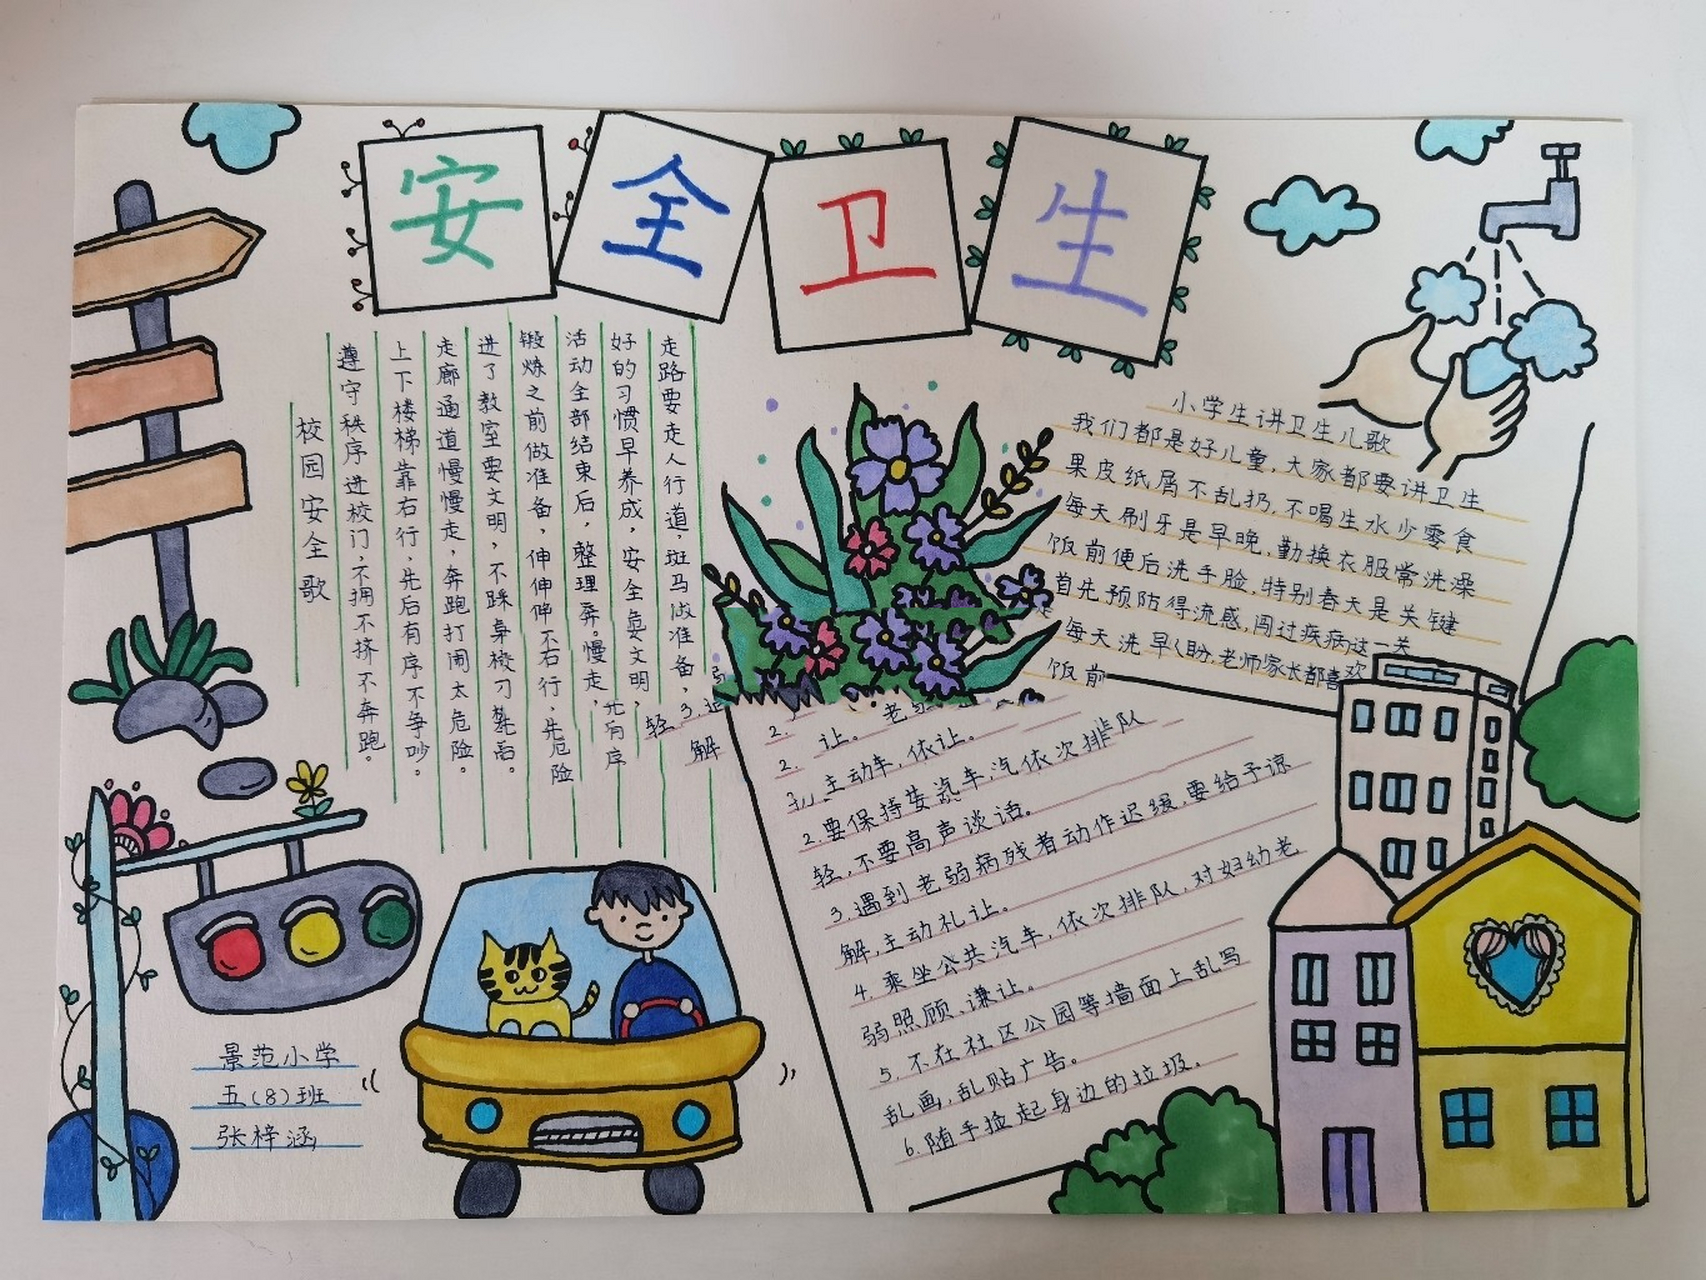 安全卫生
校园安全歌
遵守秩序进校门，不拥不挤不奔跑。
上下楼梯靠右行，先后有序不争吵。
走廊通道慢慢走，奔跑打闹太危险。
进了教室要文明，不踩桌
锻炼之前做准备，伸伸
活动全部结束后，整理
好的习惯早养成，安全
走路要走人行道，斑马
小学生讲卫生儿歌
我们都是好儿童，大家都要讲卫生
果皮纸屑不乱扔，不喝生水少零食
每天刷牙是早晚，勤换衣服常洗澡
饭前便后洗手脸，特别春天是关键
首先预防得流感，闯过疾病这一关
每天洗早
老师家长都喜欢
饭前
2.
让。
2.
主动车，依让。
2.要保持
车，汽依次排队
轻，不要高声谈话。
3.遇到老弱病残者动作迟缓，要给予谅
解，主动礼让。
4.乘坐公共汽车，依次排队，对妇幼老
弱照顾、谦让。
5.不在社区公园等墙面上乱写
乱画，乱贴广告。
6.随手捡起身边的垃圾.
景范小学
五(8)班
张梓涵